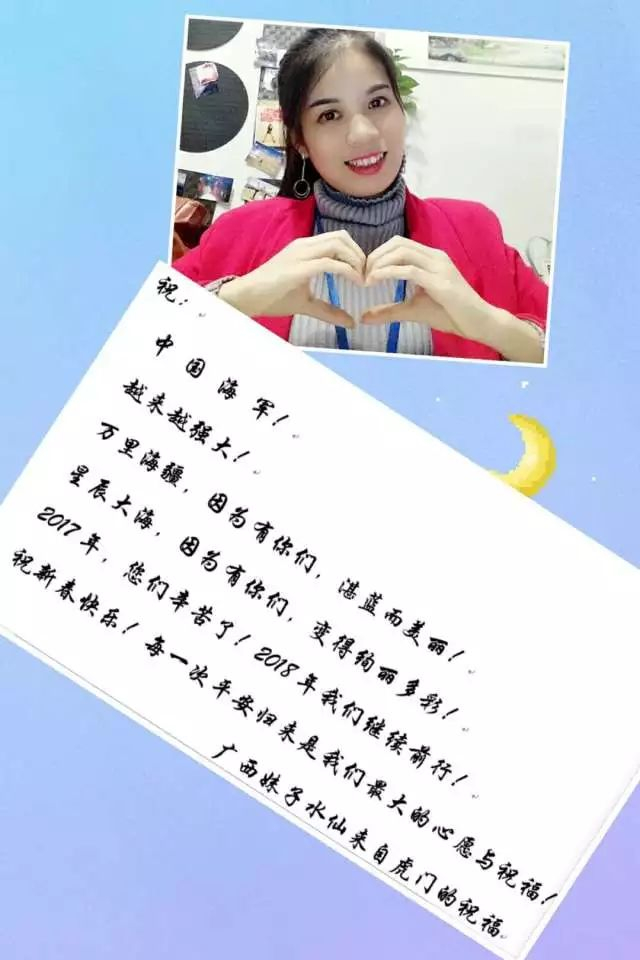 祝：
中国海军！
越来越强大！
万里海疆，因为有你们，湛蓝而美丽！
星辰大海，因为有你们，变得绚丽多彩！
2017年，您们辛苦了！2018年我们继续前行！
祝新春快乐！每一次平安归来是我们最大的心愿与祝福！
广西妹子水仙来自虎门的祝福